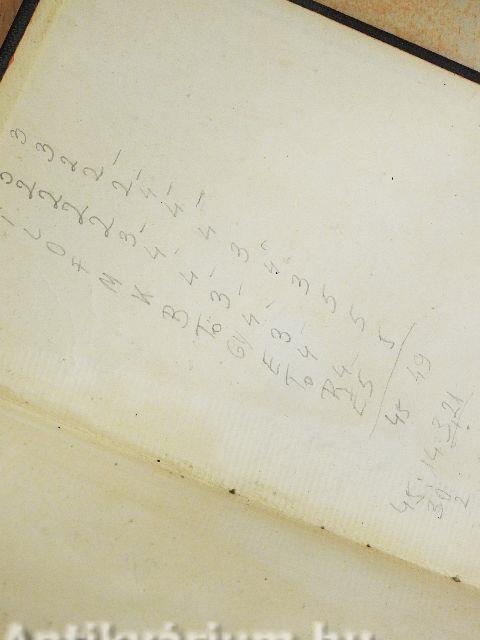 3 3
L 2 3
O 2 2
F 2 2
M 2 2-
K 3- 4-
B 4- 4-
To 4- 4-
Gy 3- 3
E 4- 4
To 3- 3
R 4 5
4- 5
E 5 5
45 49
45:14=3,21
30
2
Antikvárium.hu